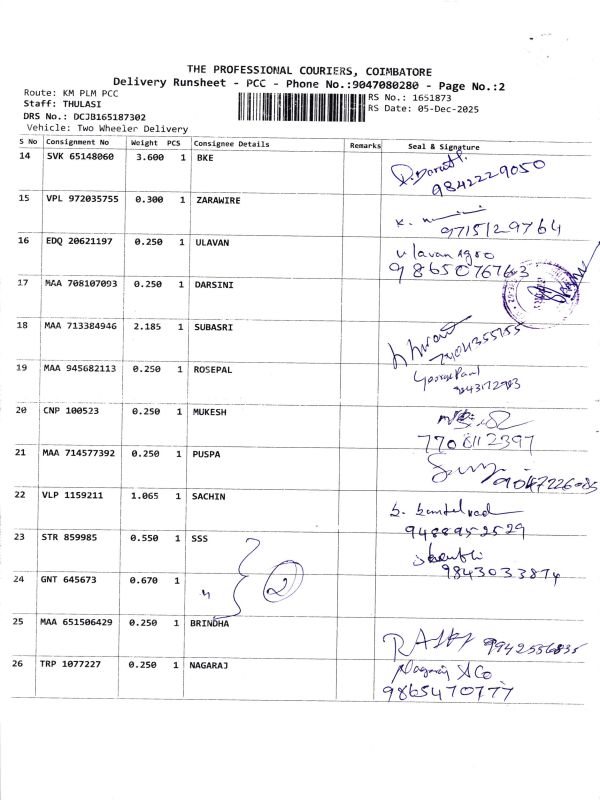 THE PROFESSIONAL COURIERS, COIMBATORE
Delivery Runsheet - PCC - Phone No.:9047080280 - Page No.:2
Route: KM PLM PCC
Staff: THULASI
DRS No.: DCJB165187302
Vehicle: Two Wheeler Delivery
RS No.: 1651873
RS Date: 05-Dec-2025
S No Consignment No Weight PCS Consignee Details Remarks Seal & Signature
14 SVK 65148060 3.600 1 BKE
9842229050
15 VPL 972035755 0.300 1 ZARAWIRE
9715129764
16 EDQ 20621197 0.250 1 ULAVAN
Ulavan Agro
9865076763
17 MAA 708107093 0.250 1 DARSINI
18 MAA 713384946 2.185 1 SUBASRI
19 MAA 945682113 0.250 1 ROSEPAL
20 CNP 100523 0.250 1 MUKESH
7708112397
21 MAA 714577392 0.250 1 PUSPA
9047226085
22 VLP 1159211 1.065 1 SACHIN
9488952529
23 STR 859985 0.550 1 SSS
9843033874
24 GNT 645673 0.670 1 " 2
25 MAA 651506429 0.250 1 BRINDHA
26 TRP 1077227 0.250 1 NAGARAJ
Nagaraj & Co
9865470777